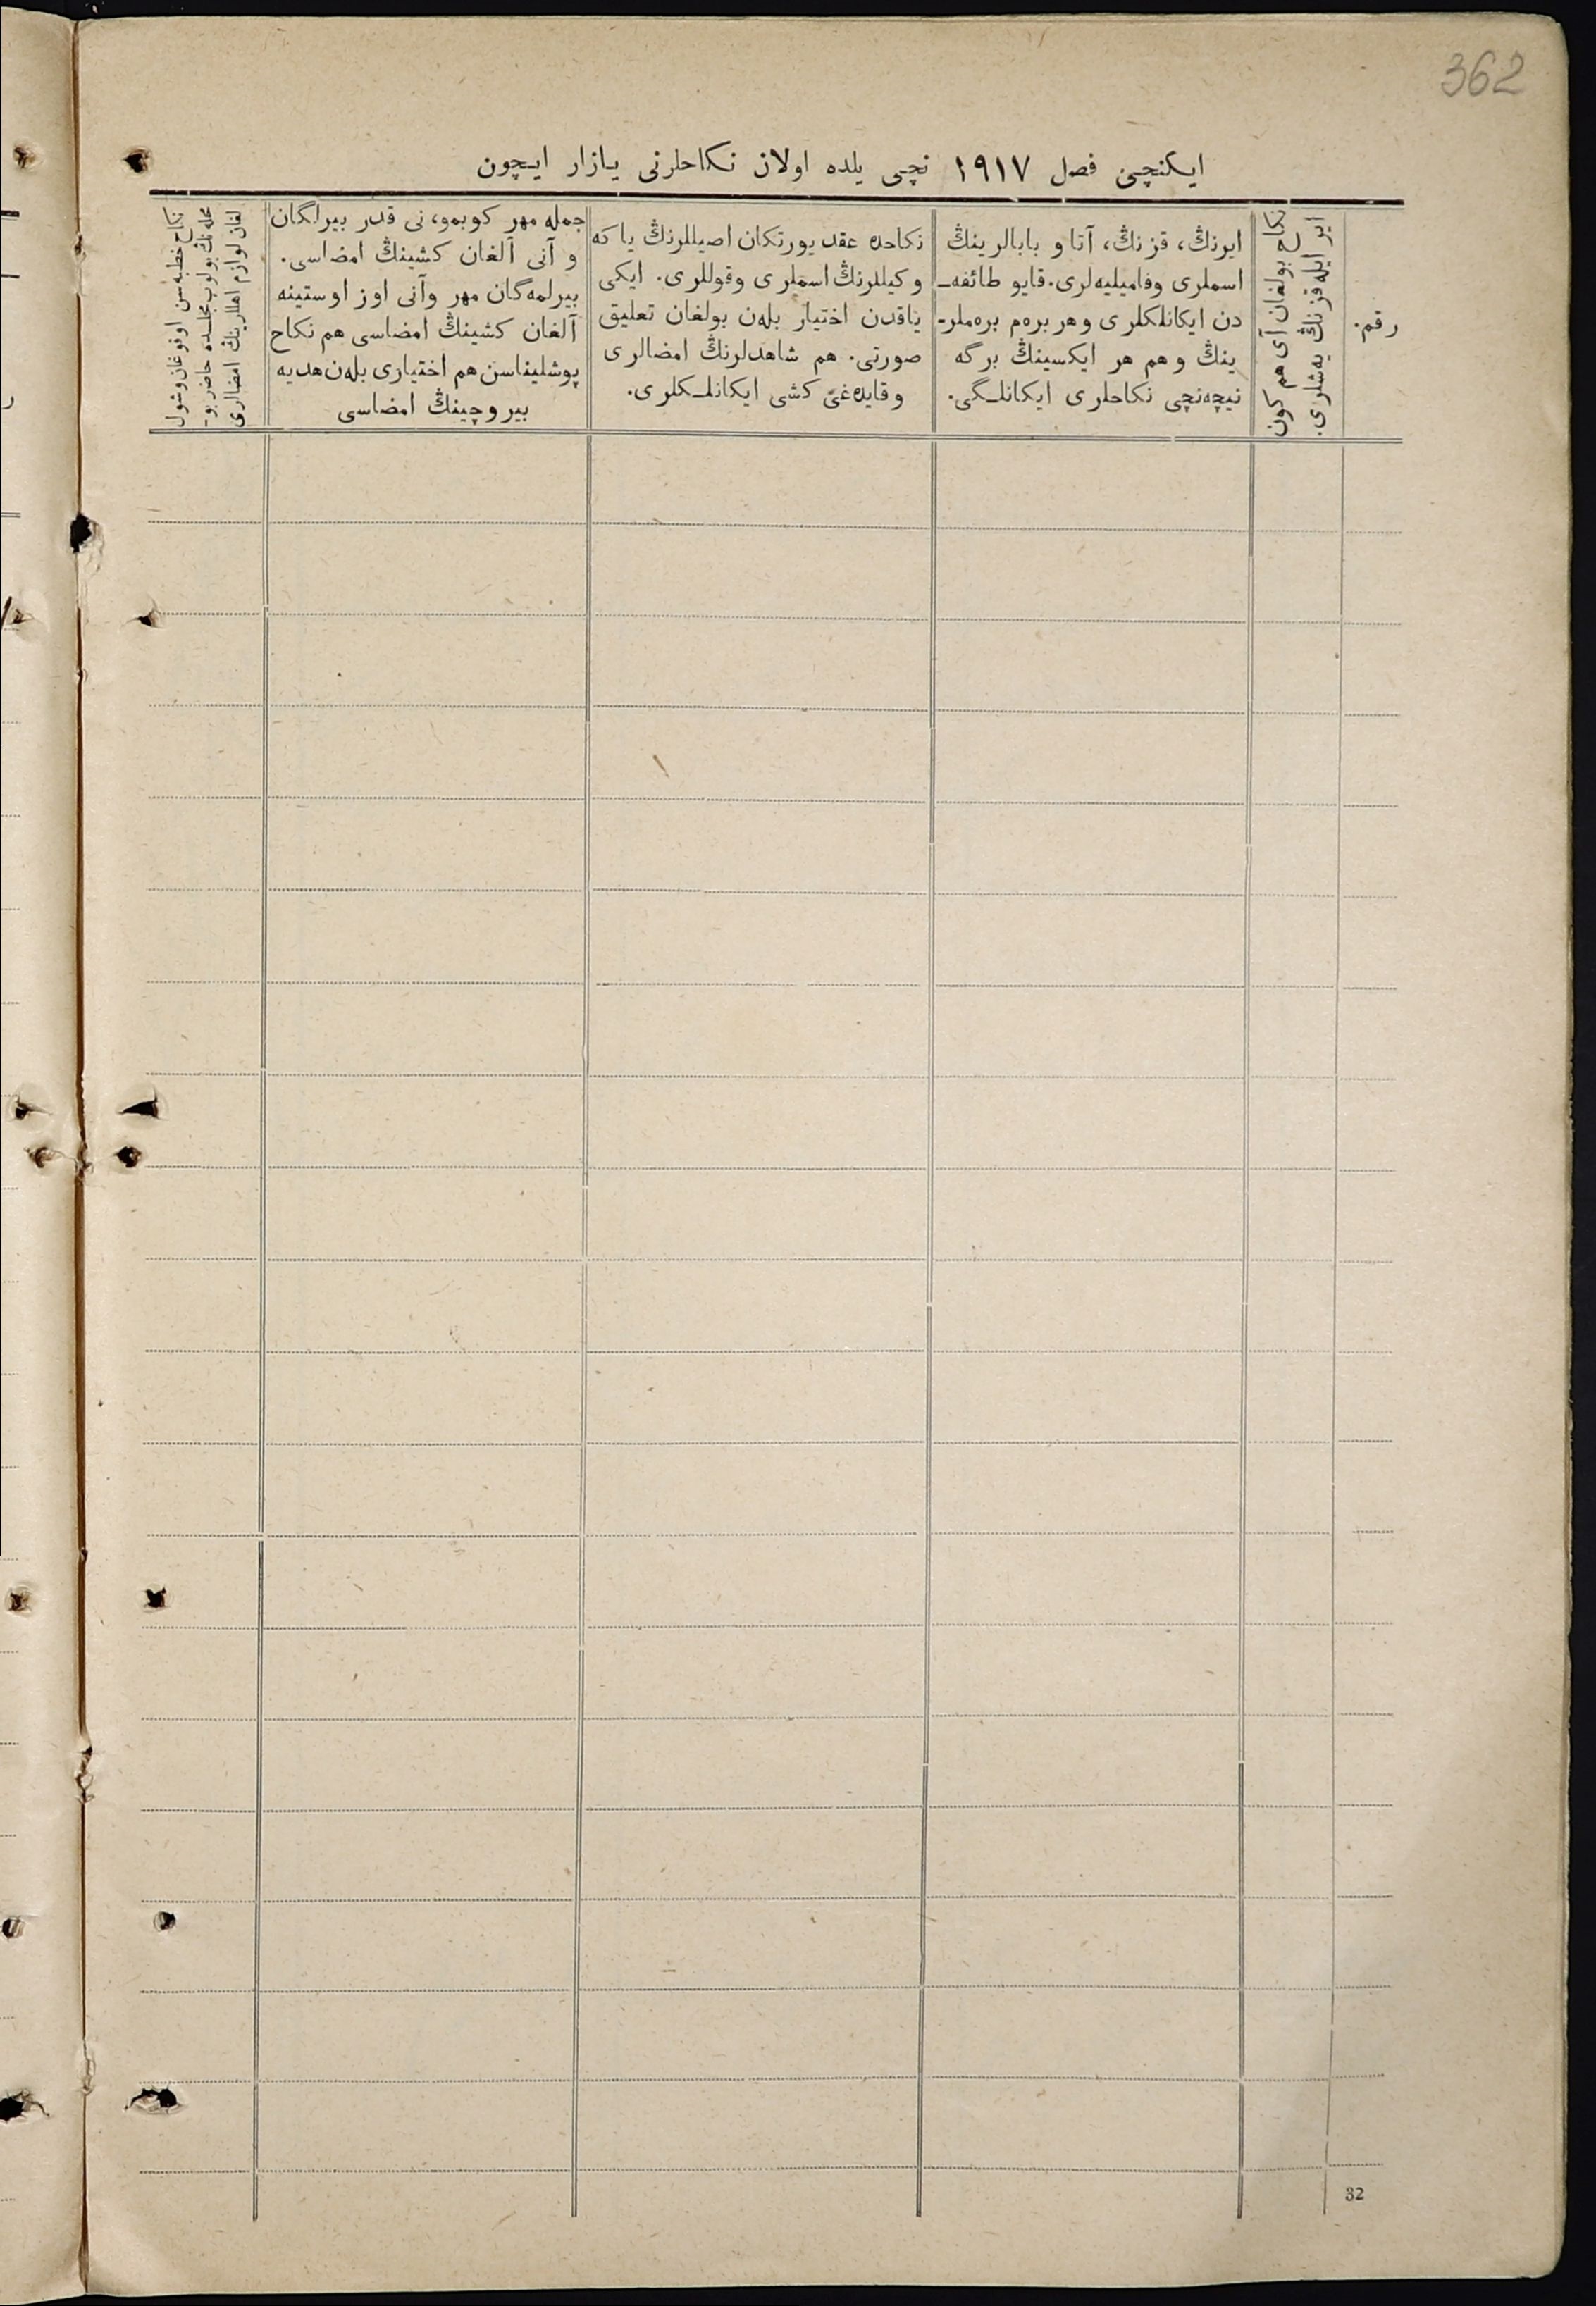 362
ایکنچی فصل ۱۹۱۷ نچی یلده اولان نکاحلرنی یازار ایچون
رقم.
نکاح بولغان آی هم کون
ایر ایله قزنڭ یه‌شلری.
ایرنڭ، قزنڭ، آتا و بابالرینڭ
اسملری وفامیلیه‌لری. قایو طائفه‌ـ
دن ایکانلکلری و هر بره‌م بره‌ملرـ
ینڭ و هم هر ایکسینڭ برگه
نیچه‌نچی نکاحلری ایکانلـگی.
نکاحده عقد یورتکان اصیللرنڭ یا که
وکیللرنڭ اسملری وقوللری. ایکی
یاقدن اختیار بله‌ن بولغان تعلیق
صورتی. هم شاهدلرنڭ امضالری
وقایده‌غی کشی ایکانلـکلری.
جمله مهر کوبمو، نی قدر بیرلگان
و آنی آلغان کشینڭ امضاسی.
بیرلمه‌گان مهر وآنی اوز اوستینه
آلغان کشینڭ امضاسی هم نکاح
پوشلیناسن هم اختیاری بله‌ن هدیه
بیروچینڭ امضاسی
نکاح خطبه‌سن اوقوغان وشول
محله‌نڭ بولوب مجلسده حاضر بوـ
لغان لوازم اهللارینڭ امضالری
32